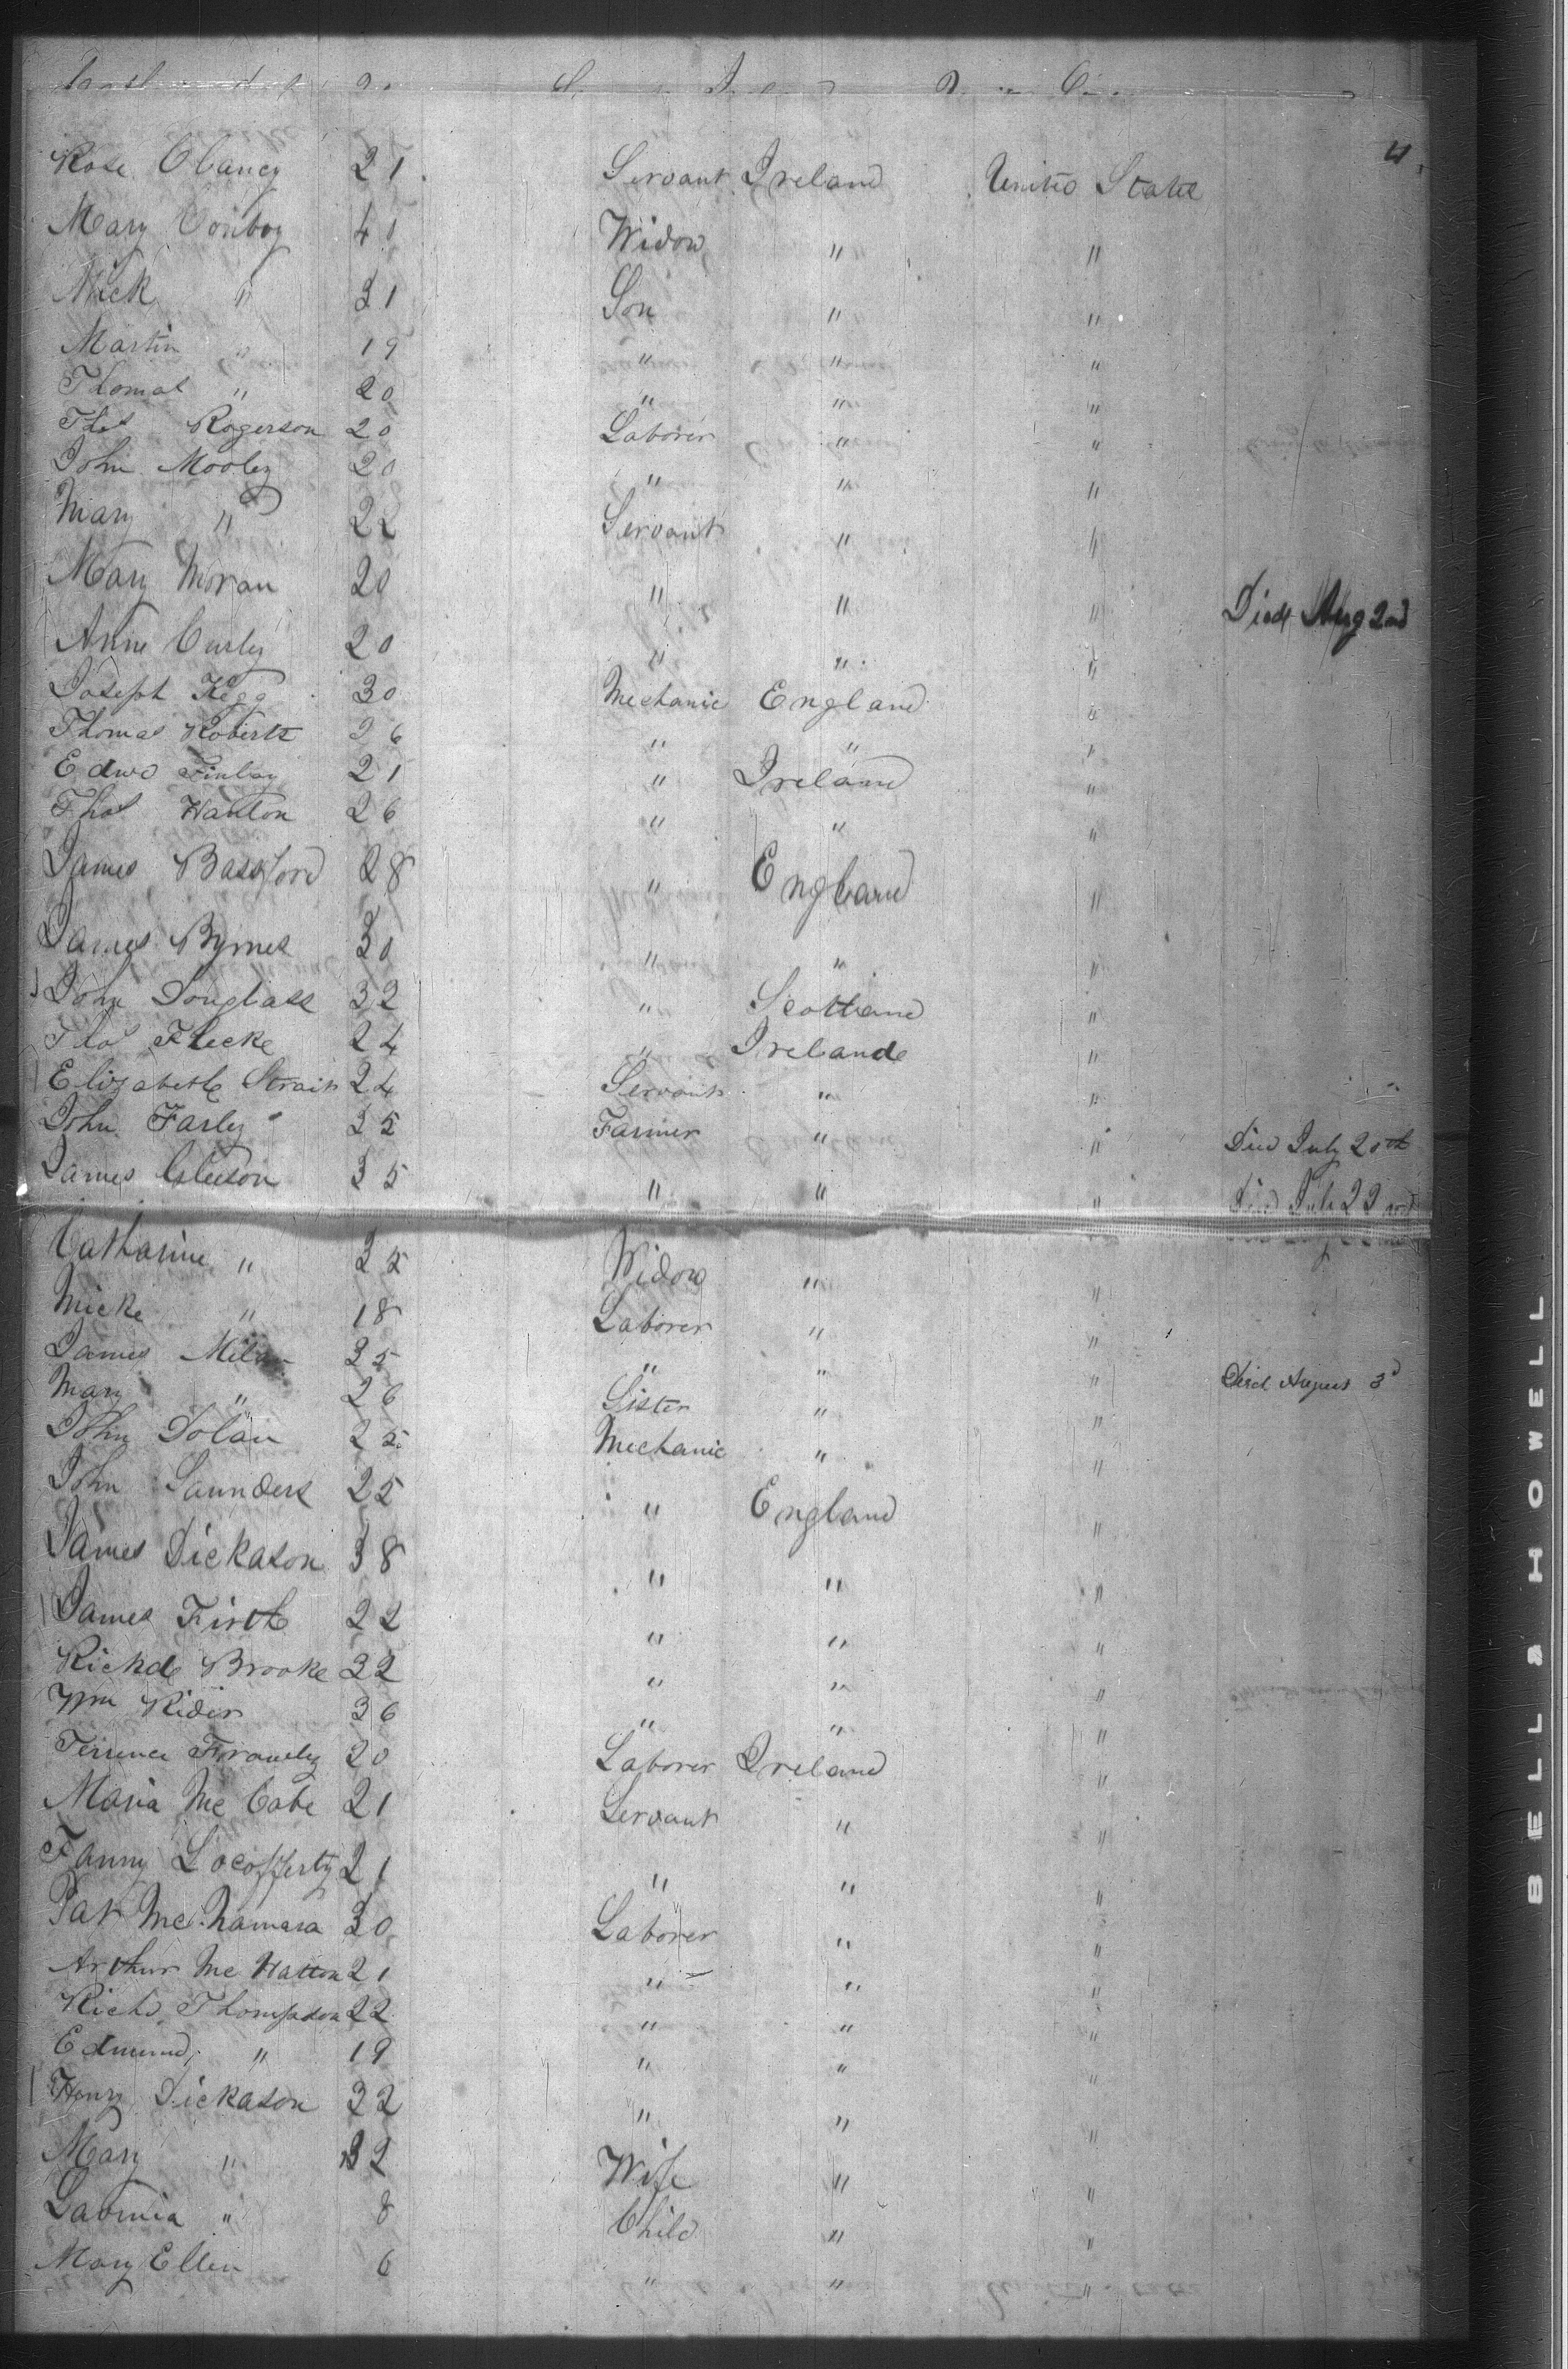 4.
Rose Clancy 21. Servant Ireland United States
Mary Conboy 41 Widow " "
Mick " 31 Son " "
Martin " 19 " " "
Thomas " 20 " " "
Thos Rogerson 20 Laborer " "
John Mooley 20 " " "
Mary " 22 Servant " "
Mary Moran 20 " " " Died Aug 2nd
Anne Curley 20 " " "
Joseph Kegg 30 Mechanic England "
Thomas Roberts 26 " " "
Edwd Finlay 21 " Ireland "
Thos Hanlon 26 " " "
James Bassford 28 " England "
James Byrnes 30 " " "
John Douglass 32 " Scotland "
Thos Flecke 24 " Irelande "
Elizabeth Strait 24 Servant " "
John Farley 35 Farmer " " Died July 20th
James Gleeson 35 " " " Died July 22nd
Catharine " 35 Widow " "
Micke " 18 Laborer " "
James Milan 35 " " " Died August 3d
Mary " 26 Sister " "
John Dolan 25 Mechanic " "
John Saunders 25 " England "
James Dickason 38 " " "
James Firth 22 " " "
Richd Brooke 32 " " "
Wm Rider 36 " " "
Terrence 20 Laborer Ireland "
Maria Mc Cabe 21 Servant " "
Fanny Locofferty 21 " " "
Pat McNamara 30 Laborer " "
Arthur Mc Hatton 21 " " "
Richd Thompson 22 " " "
Edmund " 19 " " "
Henry Dickason 32 " " "
Mary " 32 Wife " "
Lavinia " 8 Child " "
Mary Ellen 6 " " "
BELL & HOWELL